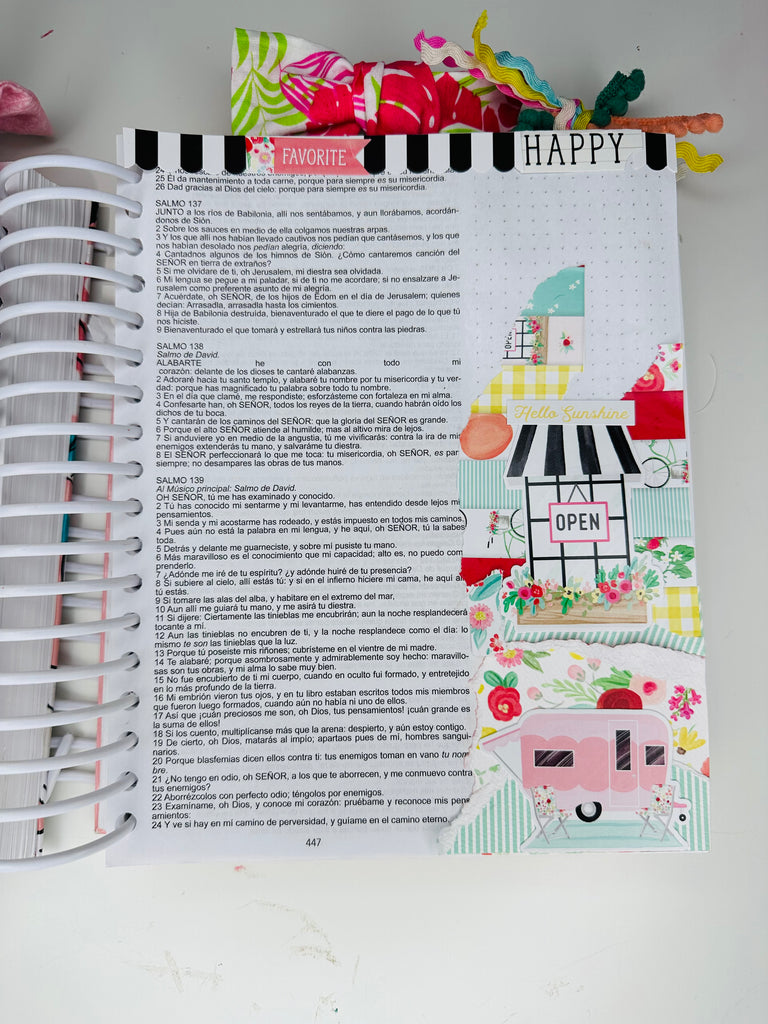 FAVORITE
HAPPY
25 Él da mantenimiento a toda carne, porque para siempre es su misericordia.
26 Dad gracias al Dios del cielo: porque para siempre es su misericordia.
SALMO 137
JUNTO a los ríos de Babilonia, allí nos sentábamos, y aun llorábamos, acordán-
donos de Sión.
2 Sobre los sauces en medio de ella colgamos nuestras arpas.
3 Y los que allí nos habían llevado cautivos nos pedían que cantásemos, y los que
nos habían desolado nos pedían alegría, diciendo:
4 Cantadnos algunos de los himnos de Sión. ¿Cómo cantaremos canción del
SEÑOR en tierra de extraños?
5 Si me olvidare de ti, oh Jerusalem, mi diestra sea olvidada.
6 Mi lengua se pegue a mi paladar, si de ti no me acordare; si no ensalzare a Je-
rusalem como preferente asunto de mi alegría.
7 Acuérdate, oh SEÑOR, de los hijos de Edom en el día de Jerusalem; quienes
decían: Arrasadla, arrasadla hasta los cimientos.
8 Hija de Babilonia destruída, bienaventurado el que te diere el pago de lo que tú
nos hiciste.
9 Bienaventurado el que tomará y estrellará tus niños contra las piedras.
SALMO 138
Salmo de David.
ALABARTE he con todo mi
corazón: delante de los dioses te cantaré alabanzas.
2 Adoraré hacia tu santo templo, y alabaré tu nombre por tu misericordia y tu ver-
dad: porque has magnificado tu palabra sobre todo tu nombre.
3 En el día que clamé, me respondiste; esforzásteme con fortaleza en mi alma.
4 Confesarte han, oh SEÑOR, todos los reyes de la tierra, cuando habrán oído los
dichos de tu boca.
5 Y cantarán de los caminos del SEÑOR: que la gloria del SEÑOR es grande.
6 Porque el alto SEÑOR atiende al humilde; mas al altivo mira de lejos.
7 Si anduviere yo en medio de la angustia, tú me vivificarás: contra la ira de mis
enemigos extenderás tu mano, y salvaráme tu diestra.
8 El SEÑOR perfeccionará lo que me toca: tu misericordia, oh SEÑOR, es par
siempre; no desampares las obras de tus manos.
SALMO 139
Al Músico principal: Salmo de David.
OH SEÑOR, tú me has examinado y conocido.
2 Tú has conocido mi sentarme y mi levantarme, has entendido desde lejos mi
pensamientos.
3 Mi senda y mi acostarme has rodeado, y estás impuesto en todos mis caminos.
4 Pues aún no está la palabra en mi lengua, y he aquí, oh SEÑOR, tú la sabes
toda.
5 Detrás y delante me guarneciste, y sobre mí pusiste tu mano.
6 Más maravilloso es el conocimiento que mi capacidad; alto es, no puedo com
prenderlo.
7 ¿Adónde me iré de tu espíritu? ¿y adónde huiré de tu presencia?
8 Si subiere al cielo, allí estás tú: y si en el infierno hiciere mi cama, he aquí al
tú estás.
9 Si tomare las alas del alba, y habitare en el extremo del mar,
10 Aun allí me guiará tu mano, y me asirá tu diestra.
11 Si dijere: Ciertamente las tinieblas me encubrirán; aun la noche resplandecerá
tocante a mí.
12 Aun las tinieblas no encubren de ti, y la noche resplandece como el día: lo
mismo te son las tinieblas que la luz.
13 Porque tú poseíste mis riñones; cubrísteme en el vientre de mi madre.
14 Te alabaré; porque asombrosamente y admirablemente soy hecho: maravillo-
sas son tus obras, y mi alma lo sabe muy bien.
15 No fue encubierto de ti mi cuerpo, cuando en oculto fui formado, y entretejido
en lo más profundo de la tierra.
16 Mi embrión vieron tus ojos, y en tu libro estaban escritos todos mis miembros
que fueron luego formados, cuando aún no había ni uno de ellos.
17 Así que ¡cuán preciosos me son, oh Dios, tus pensamientos! ¡cuán grande es
la suma de ellos!
18 Si los cuento, multiplícanse más que la arena: despierto, y aún estoy contigo.
19 De cierto, oh Dios, matarás al impío; apartaos pues de mí, hombres sangui-
narios.
20 Porque blasfemias dicen ellos contra ti: tus enemigos toman en vano tu nom
bre.
21 ¿No tengo en odio, oh SEÑOR, a los que te aborrecen, y me conmuevo contra
tus enemigos?
22 Aborrézcolos con perfecto odio; téngolos por enemigos.
23 Examíname, oh Dios, y conoce mi corazón: pruébame y reconoce mis pens
amientos:
24 Y ve si hay en mí camino de perversidad, y guíame en el camino eterno.
447
OPEN
Hello Sunshine
OPEN